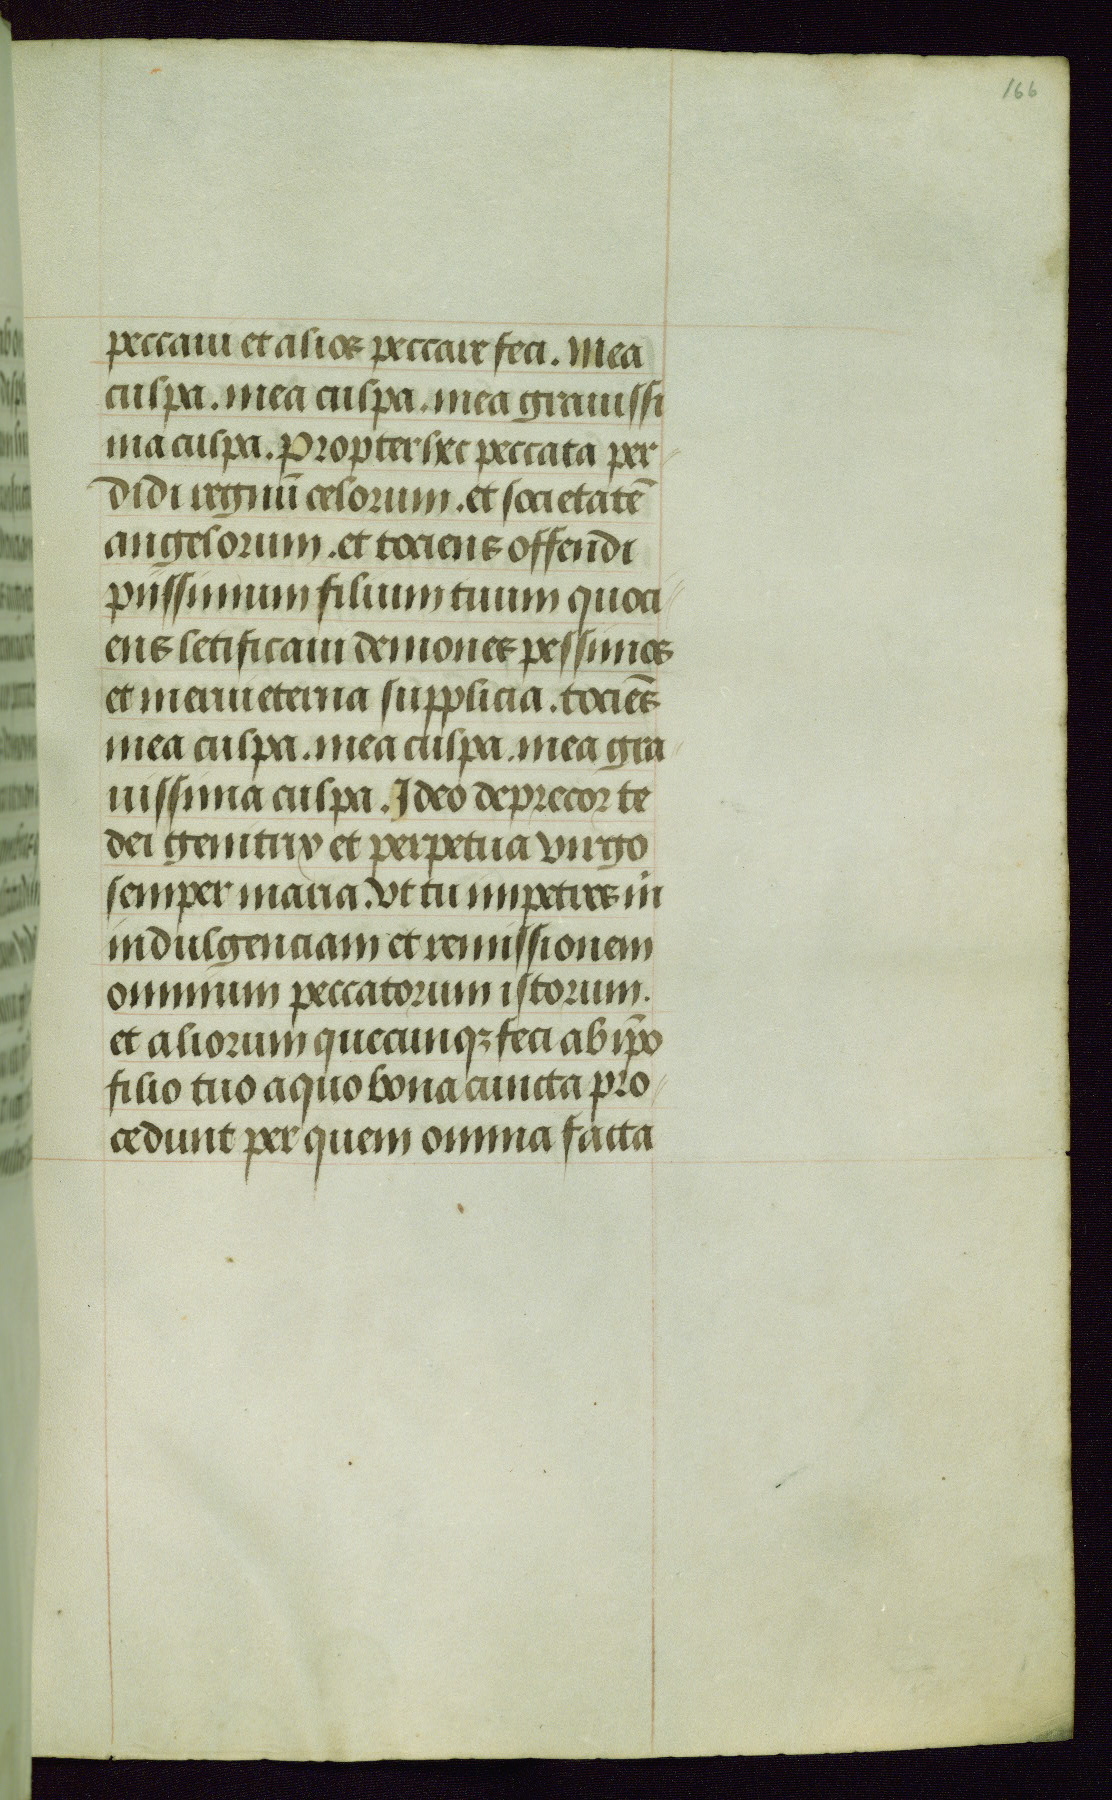 166
peccaui et alios peccare feci. Mea
culpa. mea culpa. mea grauissi
ma culpa. Propter hec peccata per
didi regnū celorum. et societatē
angelorum. et tociens offendi
piissimum filium tuum quoci
ens letificaui demones pessimos
et merui eterna supplicia. tociēs
mea culpa. mea culpa. mea gra
uissima culpa. Ideo deprecor te
dei genitrix et perpetua virgo
semper maria. Vt tu impetres in
indulgenciam et remissionem
omnium peccatorum istorum.
et aliorum quecunqꝫ feci ab ip̄o
filio tuo a quo bona cuncta pro
cedunt per quem omnia facta